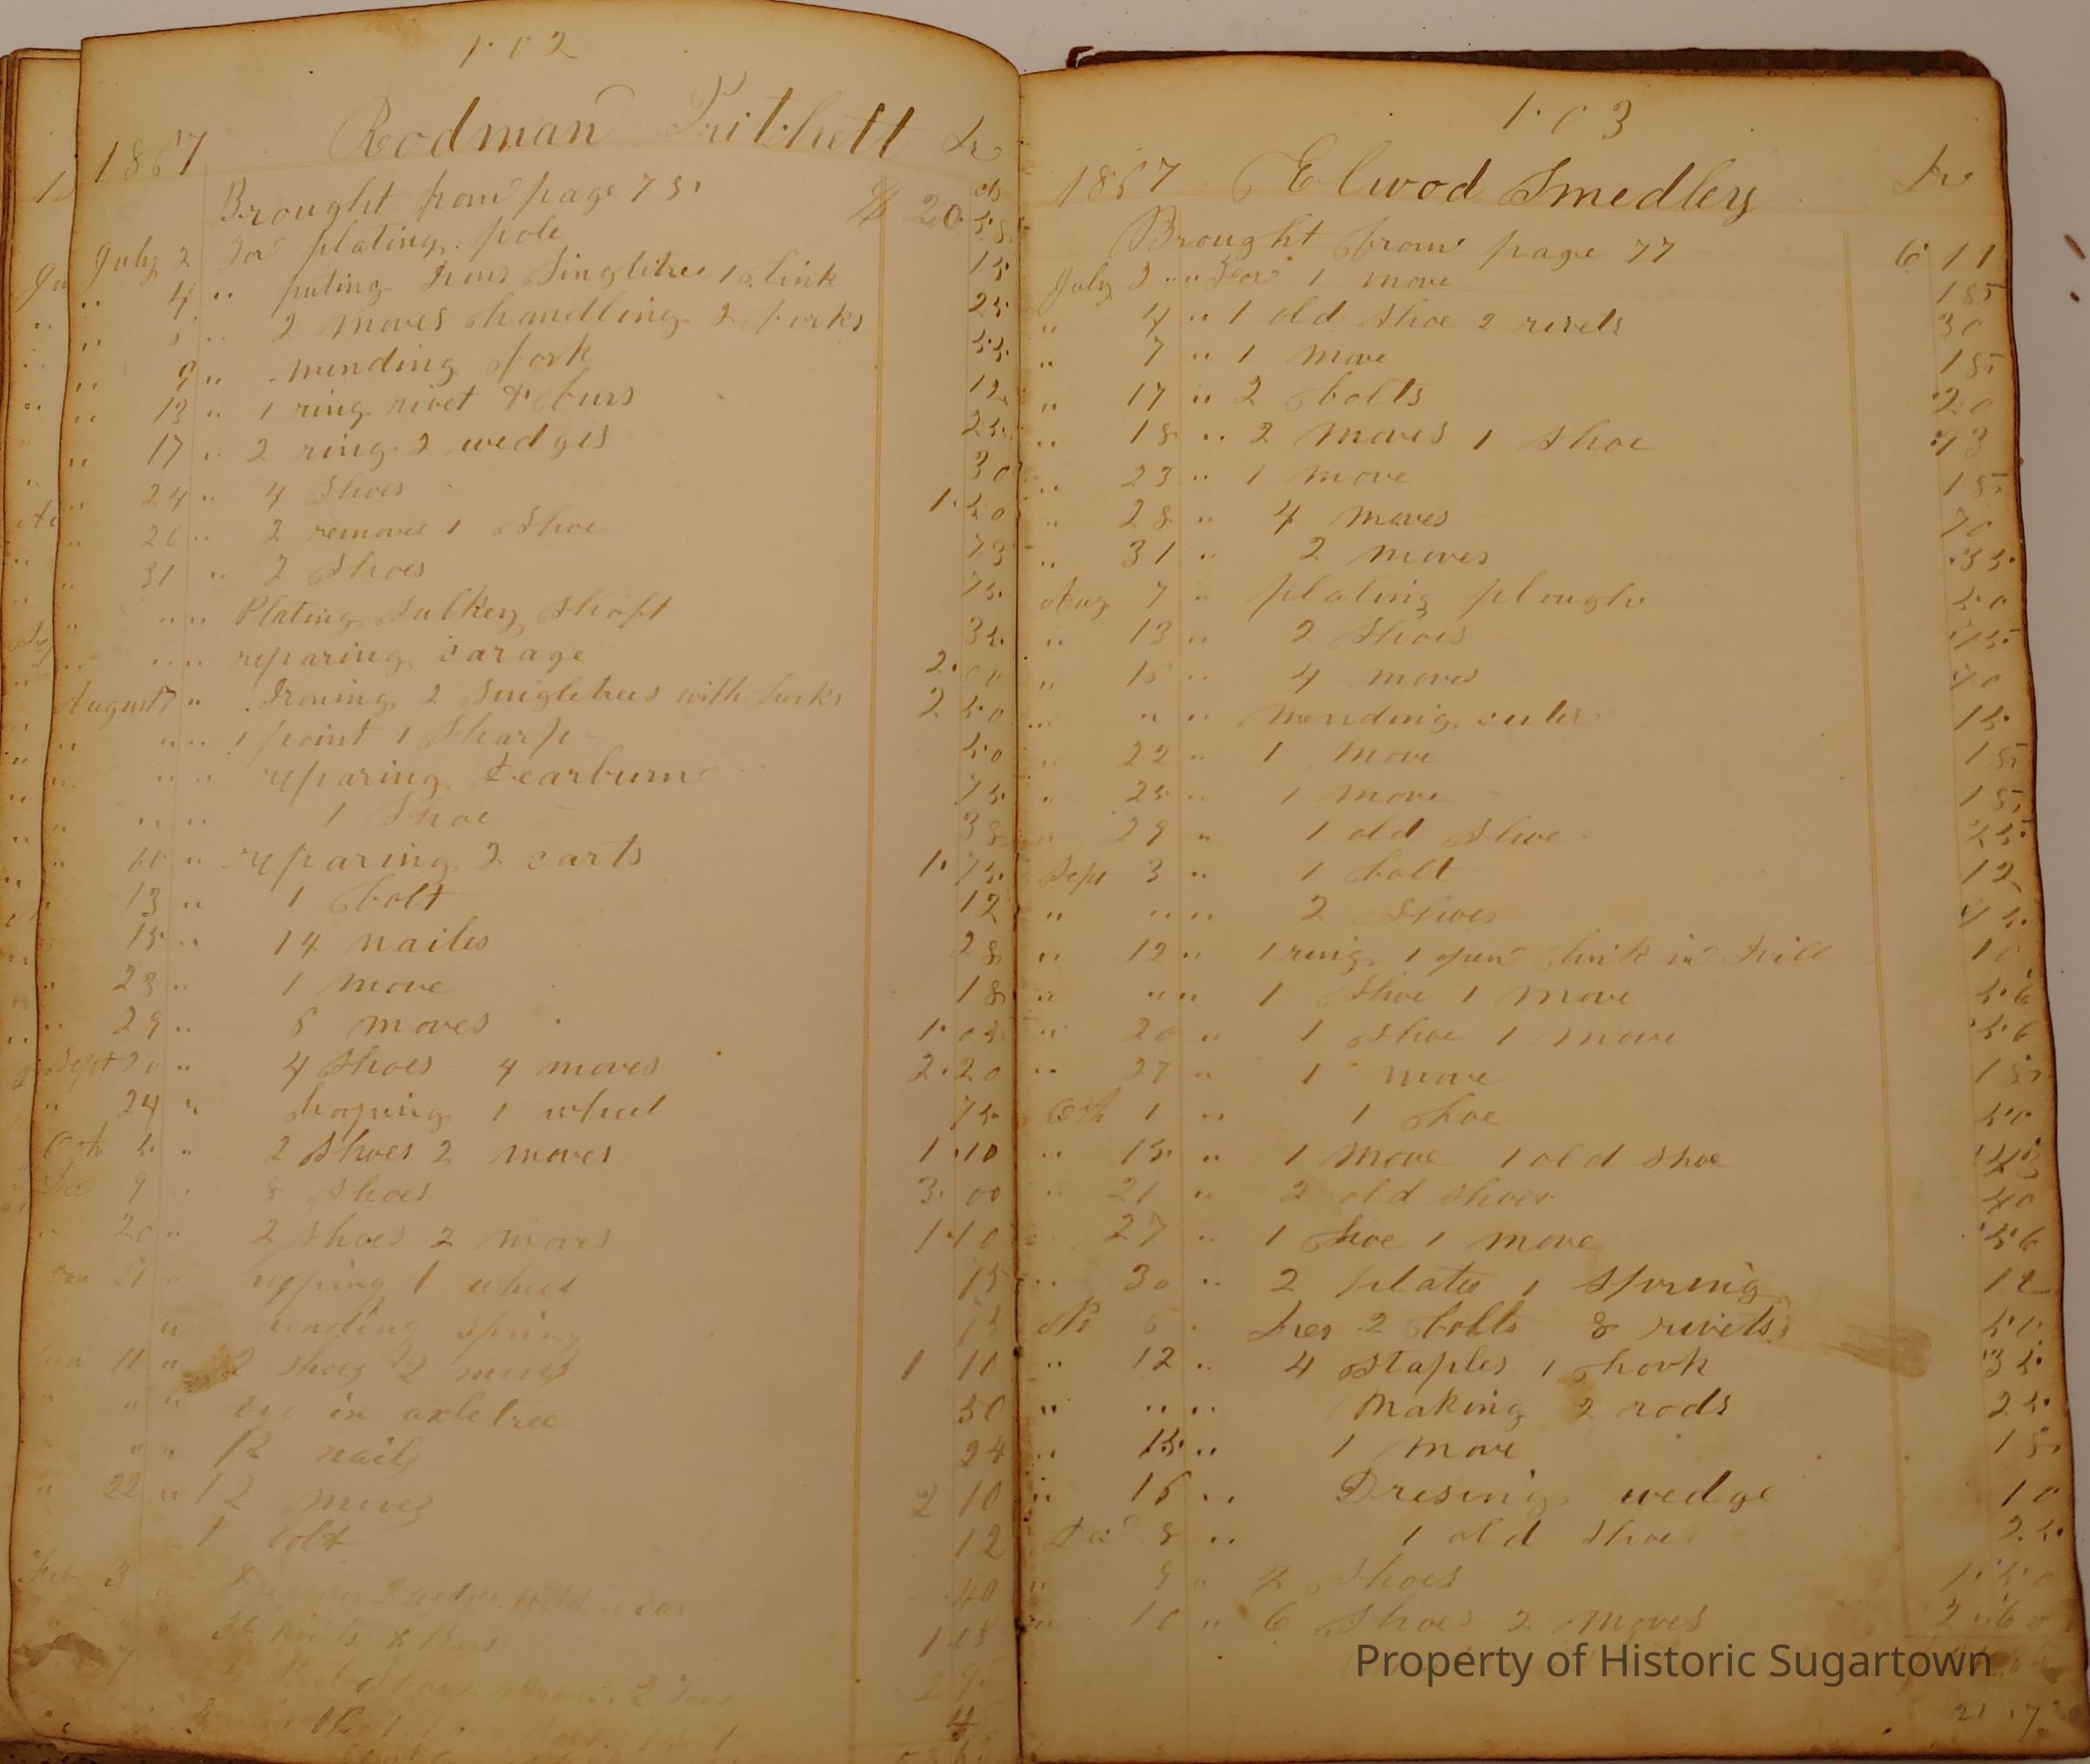 102
1867 Rodman Pritchett Dr
cts
Brought from page 75 $ 20 58
July 2 For plating pole 15
" 4 " puting Irons Singlitree 1 link 25
" 5 " 2 moves handling 2 forks 55
" 9 " mending fork 12
" 13 " 1 ring rivet & burs 25
" 17 " 2 ring 2 wedges 30
" 24 " 4 Shoes 1.50
" 20 " 2 removes 1 Shoe 73
" 31 " 2 Shoes 75
" " " Plating Sulkey Shaft 35
" " " reparing carage 2.00
August 7 " Ironing 2 Singletrees with hooks 2 50
" " " 1 point 1 Sharp 50
" " " reparing Dearburn 75
" " " 1 Shoe 38
" 10 " reparing 2 carts 1.75
" 13 " 1 bolt 12
" 15 " 14 nailes 28
" 23 " 1 move 18
" 29 " 6 moves 1.05
Sept 20 " 4 Shoes 4 moves 2.20
" 24 " hooping 1 wheel 75
Oct 5 " 2 Shoes 2 moves 1.10
Dec 9 " 8 Shoes 3.00
" 20 " 2 Shoes 2 moves 1.10
27 " 1 wheel 75
" spring 75
11 " 2 shoes 2 moves 1 11
" " " eye in axletree 50
" " " 12 nails 24
" 22 " 12 moves 2 10
1 bolt 12
Feb 3 40
" " " 36 & Burs 1
7
103
1867 Elwood Smedley Dr
Brought from page 77 6 11
July 2 " For 1 move 15
" 4 " 1 old Shoe 2 rivets 30
" 7 " 1 move 15
" 17 " 2 bolts 20
" 18 " 2 moves 1 Shoe 73
" 23 " 1 move 15
" 28 " 4 moves 70
" 31 " 2 moves 35
Aug 7 " plating plough 50
" 13 " 2 Shoes 75
" 16 " 4 moves 70
" " " mending cutter 15
" 22 " 1 move 15
" 25 " 1 move 15
" 29 " 1 old Shoe 25
Sept 3 " 1 bolt 12
" " " 2 Shoes 75
" 12 " 1 ring 1 open link in 10
" " " 1 Shoe 1 move 56
" 20 " 1 Shoe 1 move 56
" 27 " 1 move 15
Oct 1 " 1 Shoe 50
" 15 " 1 move 1 old Shoe
" 21 " 2 old Shoes 40
" 27 " 1 Shoe 1 move 56
" 30 " 2 plates 1 Spring 12
6 " 2 bolts 8 rivets 50
" 12 " 4 Staples 1 hook 35
" " " Making 2 rods 25
" 15 " 1 move 15
" 16 " Dresing wedge 10
Dec 8 " 1 old Shoe 25
" 9 " 4 Shoes 1.50
" 10 " 6 Shoes 2 moves 2.60
Property of Historic Sugartown